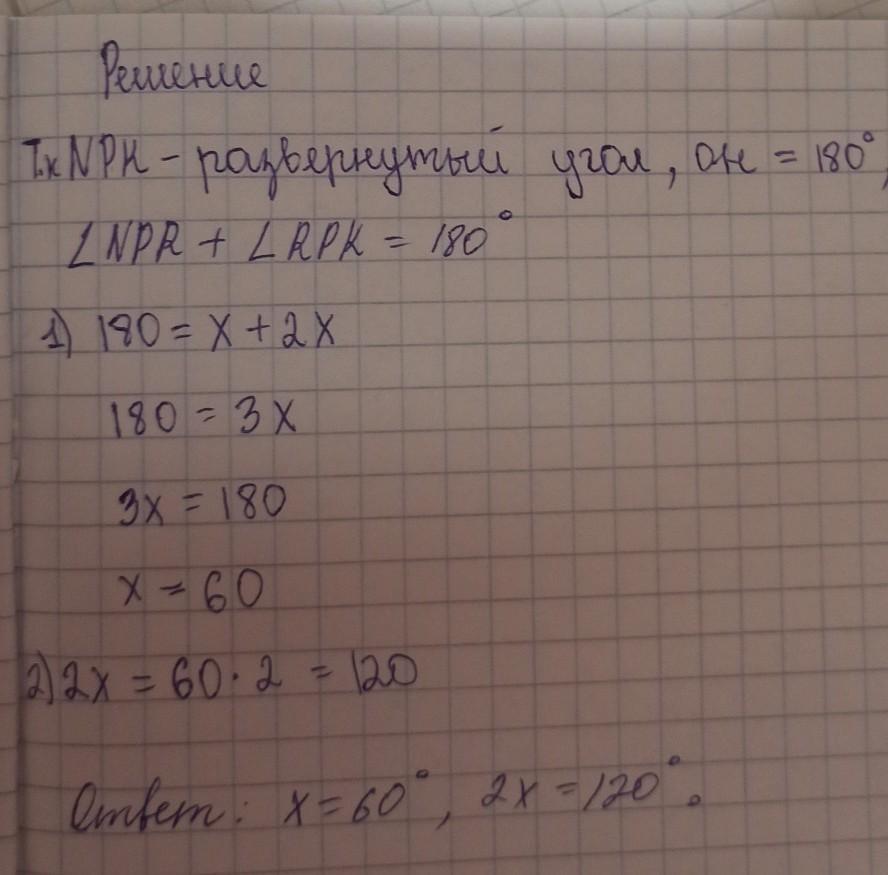 Решение
Т.к NPK - развернутый угол, он = 180°,
∠NPR + ∠RPK = 180°
1) 180 = x + 2x
180 = 3x
3x = 180
x = 60
2) 2x = 60 · 2 = 120
Ответ: x = 60°, 2x = 120°.